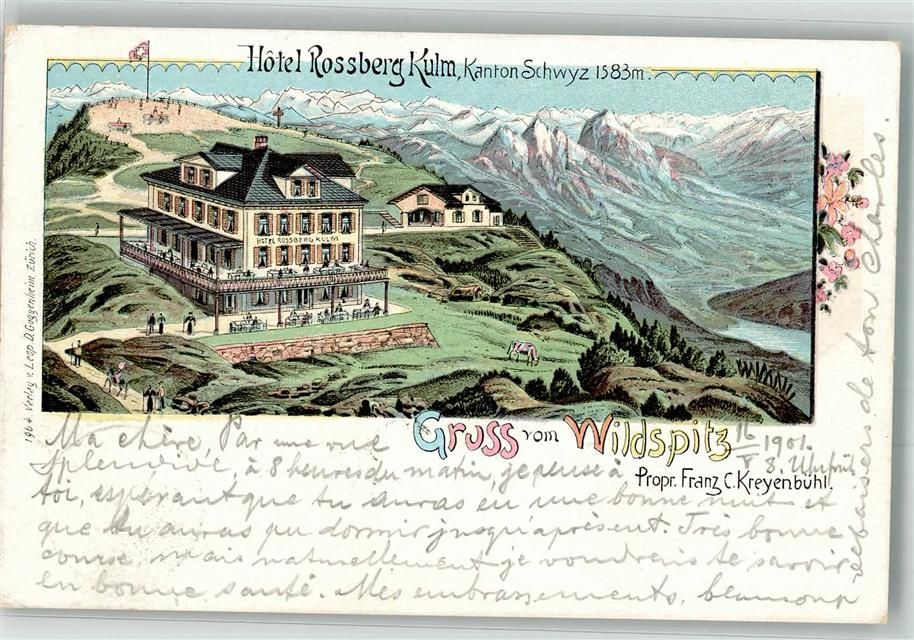 Hôtel Rossberg Kulm, Kanton Schwyz 1583m.
HOTEL ROSSBERG KULM
1964. Verlag v. Leop. D. Guggenheim, Zürich.
Gruss vom Wildspitz
Propr. Franz C. Kreyenbühl.
16/V 1901.
8. Uhr früh
Ma chère, Par une vue
splendide, à 8 heures du matin, je pense à
toi, espérant que tu auras eu une bonne nuit et
que tu auras pu dormir jusqu'à présent. Très bonne
course, mais naturellement je voudrais te savoir
en bonne santé. Mes embrassements, beaucoup
de baisers de ton Charles